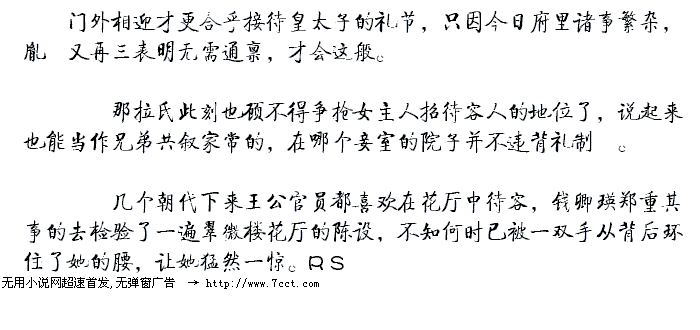 门外相迎才更合乎接待皇太子的礼节，只因今日府里诸事繁杂，
胤　又再三表明无需通禀，才会这般。
那拉氏此刻也顾不得争抢女主人招待客人的地位了，说起来
也能当作兄弟共叙家常的，在哪个妾室的院子并不违背礼制　。
几个朝代下来王公官员都喜欢在花厅中待客，钱卿瑛郑重其
事的去检验了一遍翠微楼花厅的陈设，不知何时已被一双手从背后环
住了她的腰，让她猛然一惊。RS
无用小说网超速首发,无弹窗广告　→ http://www.7cct.com